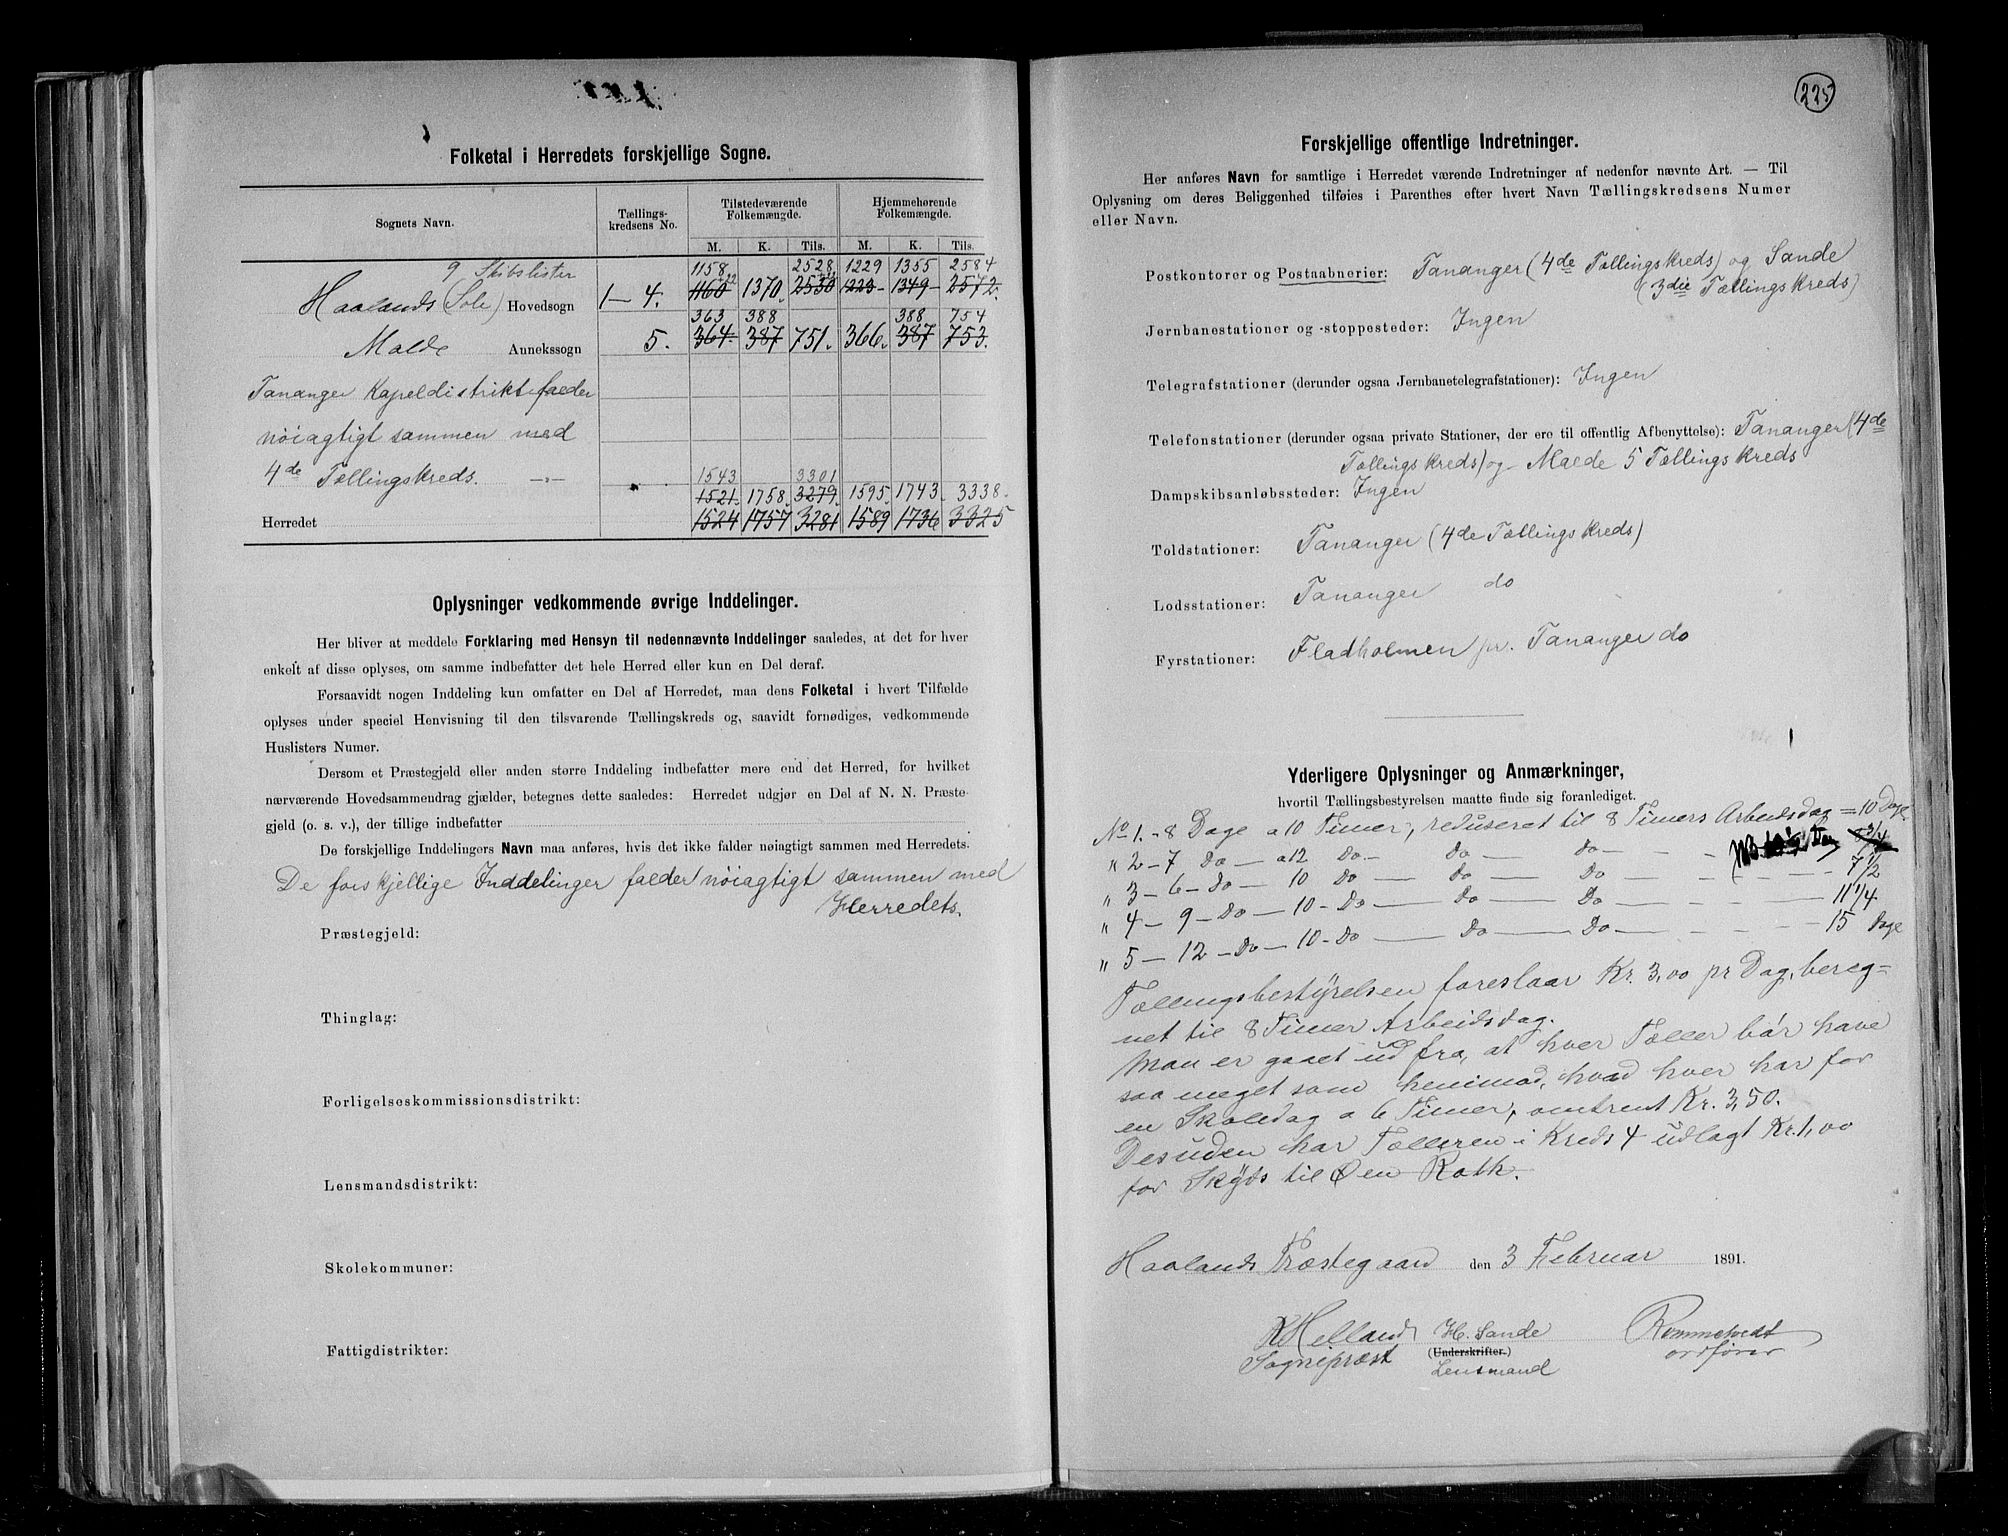 Folketal i Herredets forskjellige Sogne.
Sognets Navn.
Tællings-
kredsens No.
Tilstedeværende
Folkemængde.
Hjemmehørende
Folkemængde.
M. K. Tils. M. K. Tils.
9 Skibslister 1158 22 2528 1229 1355 2584
Haalands (Sole) Hovedsogn 1-4. 1160 1370. 2530 1223 1349 2572.
363 388 388 754
Malde Annekssogn 5. 364. 387 751. 366. 387 753.
Tananger Kapeldistrikt falder
nöiagtigt sammen med
4de Tællingskreds.
1543 3301
1521 1758. 3279. 1595. 1743. 3338.
Herredet 1524 1757 3281 1589 1736 3325
Oplysninger vedkommende øvrige Inddelinger.
Her bliver at meddele Forklaring med Hensyn til nedennævnte Inddelinger saaledes, at det for hver
enkelt af disse oplyses, om samme indbefatter det hele Herred eller kun en Del deraf.
Forsaavidt nogen Inddeling kun omfatter en Del af Herredet, maa dens Folketal i hvert Tilfælde
oplyses under speciel Henvisning til den tilsvarende Tællingskreds og, saavidt fornødiges, vedkommende
Huslisters Numer.
Dersom et Præstegjeld eller anden større Inddeling indbefatter mere end det Herred, for hvilket
nærværende Hovedsammendrag gjælder, betegnes dette saaledes: Herredet udgjør en Del af N. N. Præste-
gjeld (o. s. v.), der tillige indbefatter
De forskjellige Inddelingers Navn maa anføres, hvis det ikke falder nøiagtigt sammen med Herredets.
De forskjellige Inddelinger falder nöiagtigt sammen med
Herredets.
Præstegjeld:
Thinglag:
Forligelseskommissionsdistrikt:
Lensmandsdistrikt:
Skolekommuner:
Fattigdistrikter:
225
Forskjellige offentlige Indretninger.
Her anføres Navn for samtlige i Herredet værende Indretninger af nedenfor nævnte Art. — Til
Oplysning om deres Beliggenhed tilføies i Parenthes efter hvert Navn Tællingskredsens Numer
eller Navn.
Postkontorer og Postaabnerier: Tananger (4de Tællingskreds) og Sande
(3die Tællingskreds)
Jernbanestationer og -stoppesteder: Ingen
Telegrafstationer (derunder ogsaa Jernbanetelegrafstationer): Ingen
Telefonstationer (derunder ogsaa private Stationer, der ere til offentlig Afbenyttelse): Tananger (4de
Tællingskreds) og Malde 5 Tællingskreds
Dampskibsanløbssteder: Ingen
Toldstationer: Tananger (4de Tællingskreds)
Lodsstationer: Tananger do
Fyrstationer: Fladholmen pr. Tananger do
Yderligere Oplysninger og Anmærkninger,
hvortil Tællingsbestyrelsen maatte finde sig foranlediget.
No 1. - 8 Dage a 10 Timer, reduseret til 8 Timers Arbeidsdag = 10 Dage
" 2 - 7 Do — a 12 Do — Do — Do —
" 3 - 6 - Do — 10 Do — Do — Do — 7 1/2
" 4 - 9 - Do — 10 - Do — Do — Do — 11 1/4
" 5 — 12 - Do — 10 - Do — Do — Do — 15 Dage
Tællingsbestyrelsen foreslaar Kr. 3,00 pr Dag, bereg=
net til 8 Timer Arbeidsdag.
Man er gaaet ud fra, at hver Tæller bör have
saa meget som henimod, hvad hver har for
en Skoledag a 6 Timer, omtrent Kr. 3,50.
Desuden har Tælleren i Kreds 4 udlagt Kr. 1,00
for Skyds til Øen Roth.
Haalands Præstegaard den 3 Februar 1891.
Helland H. Sande Rommetvedt
Sogneprest (Underskrifter.) ordfører
Lensmand